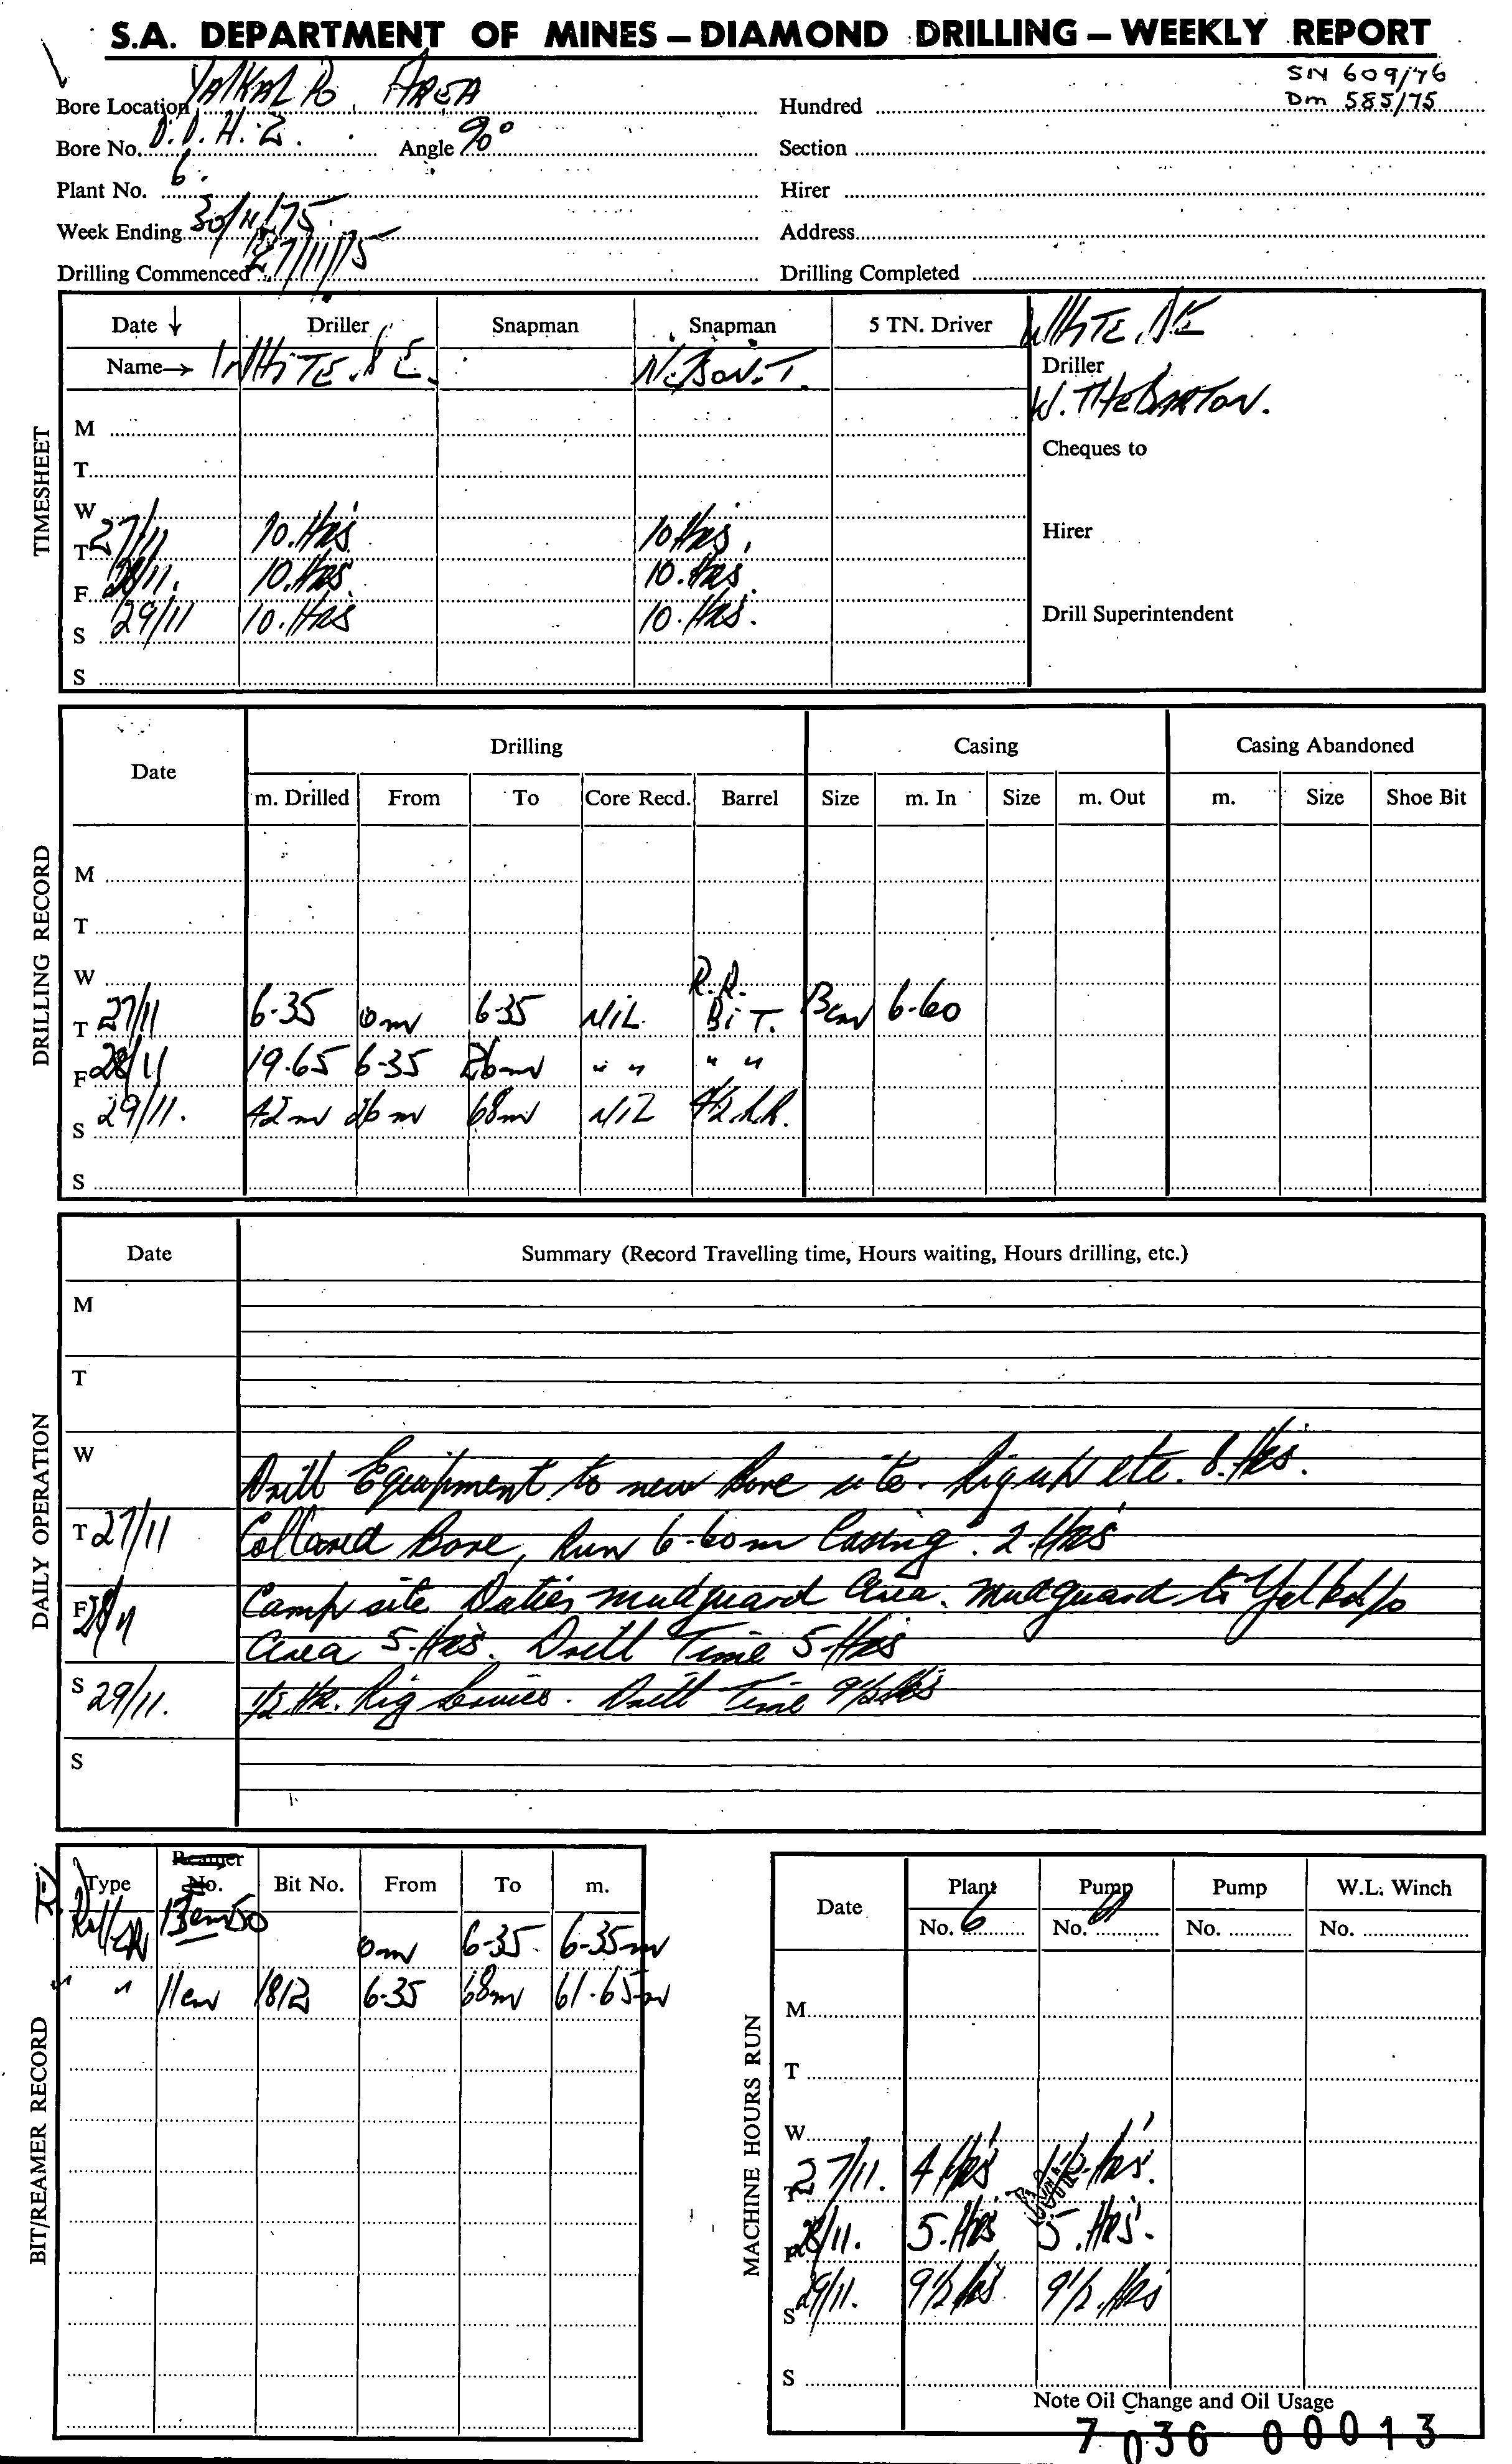 S.A. DEPARTMENT OF MINES – DIAMOND DRILLING – WEEKLY REPORT
SN 609/76
Bore Location YALKALPO AREA Hundred DM 585/75
Bore No. D.D.H. 2. Angle 90° Section
Plant No. 6. Hirer
Week Ending 30/11/75 Address
Drilling Commenced 27/11/75 Drilling Completed
TIMESHEET
Date ↓ Driller Snapman Snapman 5 TN. Driver WHITE.
Name→ WHITE. Driller
W. THEBARTON.
M
T Cheques to
W
T 27/11 10.Hrs 10 Hrs. Hirer
F 28/11. 10.Hrs 10.Hrs
S 29/11 10.Hrs 10.Hrs. Drill Superintendent
S
DRILLING RECORD
Date Drilling Casing Casing Abandoned
m. Drilled From To Core Recd. Barrel Size m. In Size m. Out m. Size Shoe Bit
M
T
W
T 27/11 6-35 0m 6-35 NiL. R.R. BiT. 6-60
F 28/11 19.65 6-35 26m " " " "
S 29/11. 42m 26m 68m NiL 4½ R.R.
S
DAILY OPERATION
Date Summary (Record Travelling time, Hours waiting, Hours drilling, etc.)
M
T
W
Drill Equipment to new Bore site. Rig up etc. 8.Hrs.
T 27/11 Collared Bore, Run 6-60m Casing. 2.Hrs
F 28/11 Camp site Duties mudguard Area. Mudguard to Yalkalpo
Area 5-Hrs. Drill Time 5-Hrs
S 29/11. 1/2.Hr. Rig Service. Drill Time 9½ Hrs
S
BIT/REAMER RECORD
Type Reamer No. Bit No. From To m.
Roller 0m 6-35. 6-35m
" " 11cm 1812 6-35 68m 61.65m
MACHINE HOURS RUN
Date Plant Pump Pump W.L. Winch
No. 6 No. No. No.
M
T
W
T 27/11. 4 Hrs 1½ Hrs.
F 28/11. 5.Hrs 5.Hrs.
S 29/11. 9½ Hrs 9½.Hrs
S
Note Oil Change and Oil Usage
7 036 00013